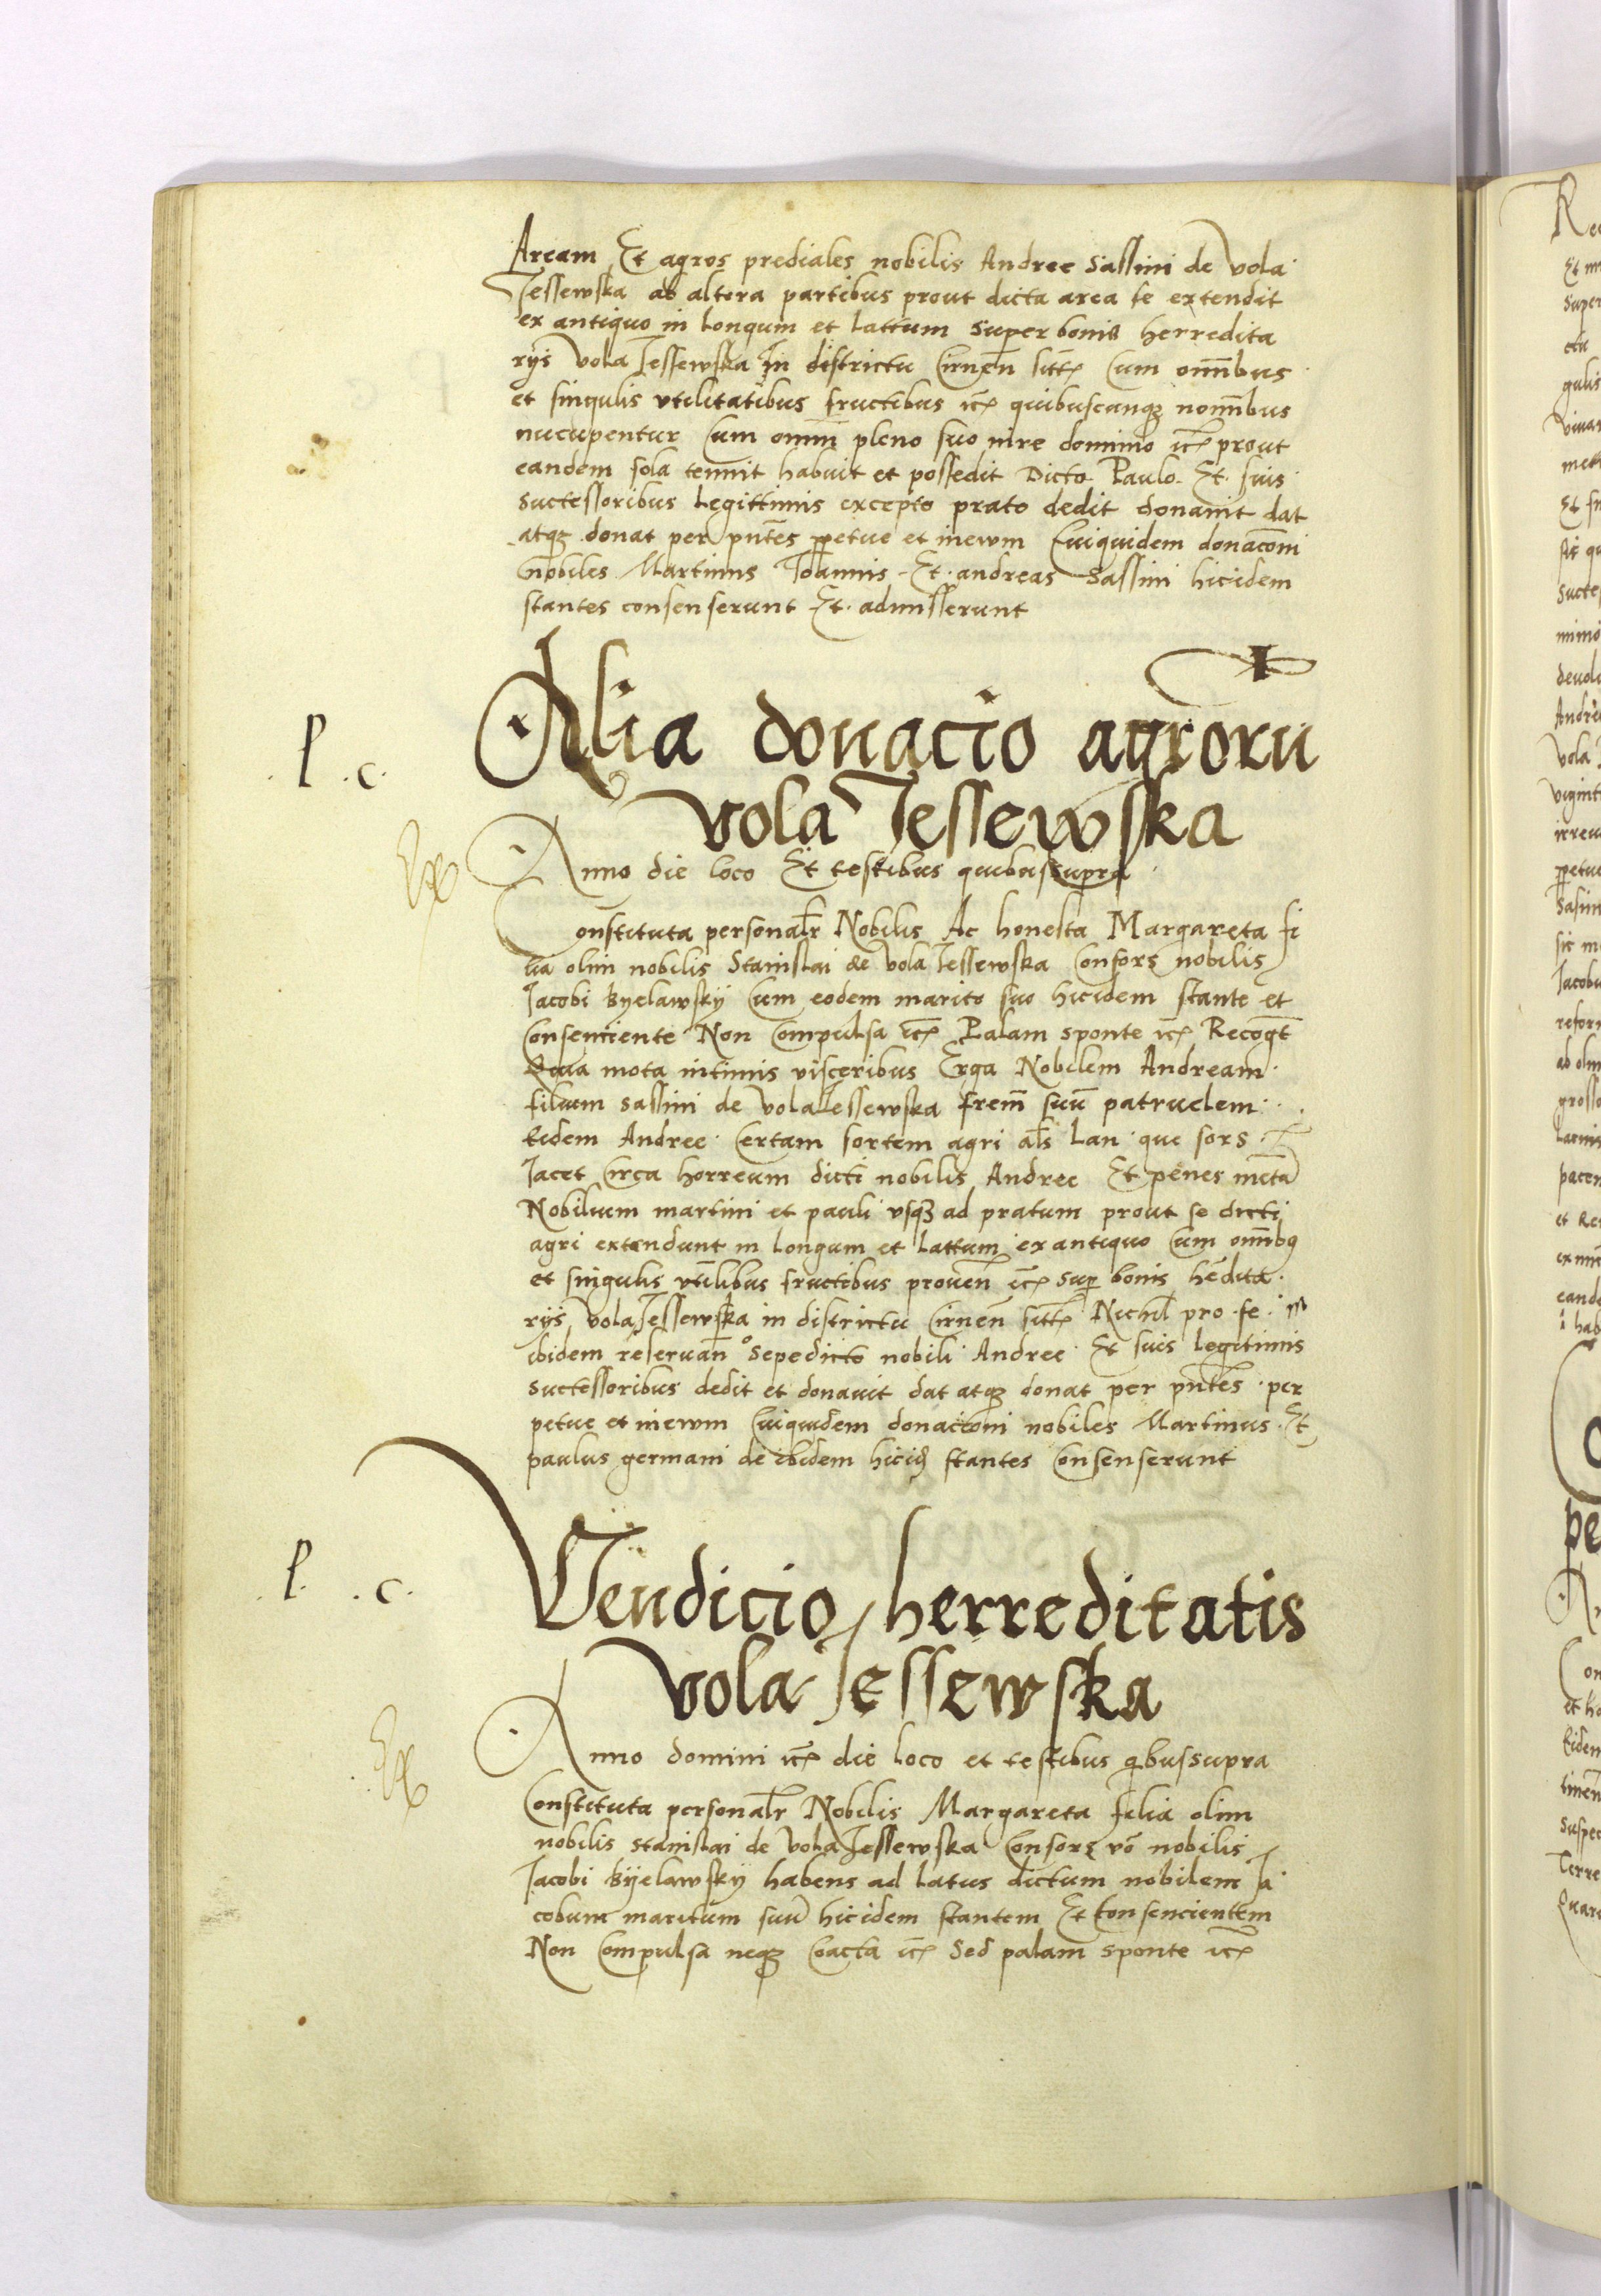 Aream Et agros prediales nobilis Andree Sassini de vola
Jessewska ab altera partibus prout dicta area se extendit
ex antiquo in longum et lattum super bonis herredita
rÿs vola Jessewska in districtu Cirnen̄ sitt̄ Cum omn̄ibus
et singulis vtilitatibus fructibus ict̄ quibuscanqꝫ nomn̄ibus
nucupentur Cum omni pleno suo iure dominio ict̄ prout
eandem sola tenuit habuit et possedit Dicto Paulo Et suis
suctessoribus legittimis excepto prato dedit donauit dat
atqꝫ donat per pn̄tes ꝑpetue et inewm Cuiquidem donac̄oni
nobiles Martinus Joannis Et andreas Sassini hicidem
stantes consenserunt Et admisserunt
Alia donacio agrorū
vola Jessewska
P. c.
Anno die loco Et testibus quibussupra
Constituta personalr̄ Nobilis Ac honesta Margareta fi
lia olim nobilis Stanislai de vola Jessewska Consors nobilis
Jacobi Byelawskÿ Cum eodem marito suo hicidem stante et
Consenciente Non Compulsa ict̄ Palam sponte ict̄ Recogt̄
Quia mota intimis visceribus Erga Nobilem Andream
filium Sassini de vola Jessewska frem̄ suū patruelem
Eidem Andree Certam sortem agri al̄s lan que sors
Jacet Circa horreum dicti nobilis Andree Et penes metā
Nobilium martini et pauli vsqꝫ ad pratum prout se dicti
agri extendunt in longum et lattum ex antiquo Cum omn̄ibꝯ
et singulis vtilibus fructibus prouen̄ ict̄ suꝑ bonis hēdita
rÿs vola Jessewska in districtu Cirnen̄ sitt̄ Nichil pro se
ibidem reseruan̄ Sepedicto nobili Andree Et suis legitimis
suctessoribus dedit et donauit dat atqꝫ donat per pn̄tes per
petue et inewm Cuiquidem donacioni nobiles Martinus Et
paulus germani de ibidem hicid̄ stantes Consenserunt
Vendicio herreditatis
vola Jessewska
P. c.
Anno domini ict̄ die loco et testibus qibussupra
Constituta personalr̄ Nobilis Margareta filia olim
nobilis Stanislai de vola Jessewska Consors vō nobilis
Jacobi Byelawsky habens ad latus dictum nobilem Ja
cobum maritum suū hicidem stantem Et Consencientem
Non Compulsa neqꝫ Coacta ict̄ Sed palam sponte ict̄